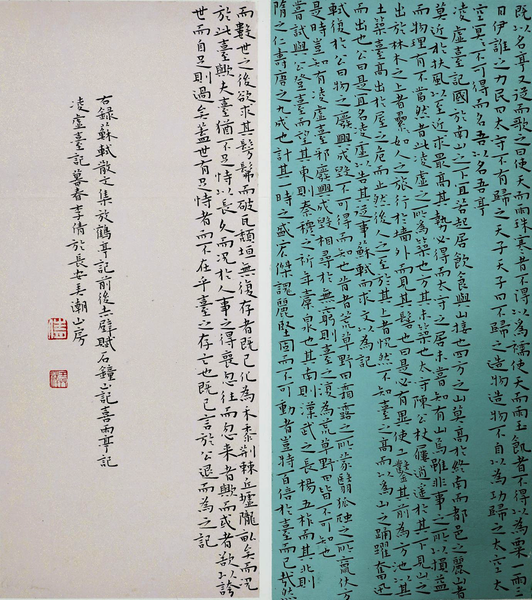 既以名亭又從而歌之曰使天而雨珠寒者不得以為襦使天而雨玉飢者不得以為粟一雨三
日伊誰之力民曰太守不有歸之天子天子曰不歸之造物造物不自以為功歸之太空太
空冥冥不可得而名吾以名吾亭
凌虛臺記國於南山之下宜若起居飲食與山接也四方之山莫高於終南而都邑之麗山者
莫近於扶風以至近求最高其勢必得而太守之居未嘗知有山焉雖非事之所以損益
而物理有不當然者此凌虛之所為築也方其未築也太守陳公杖履逍遙於其下見山之
出於林木之上者纍纍如人之旅行於牆外而見其髻也曰是必有異使工鑿其前為方池以其
土築臺高出於屋之危而止然後人之至於其上者怳然不知臺之高而以為山之踴躍奮迅
而出也公曰是宜名凌虛以告其從事蘇軾而求文以為記
軾復於公曰物之廢興成毀不可得而知也昔者荒草野田霜露之所蒙翳狐虺之所竄伏方
是時豈知有凌虛臺耶廢興成毀相尋於無窮則臺之復為荒草野田皆不可知也
嘗試與公登臺而望其東則秦穆之祈年橐泉也其南則漢武之長楊五柞而其北則
隋之仁壽唐之九成也計其一時之盛宏傑詭麗堅固而不可動者豈特百倍於臺而已哉然
而數世之後欲求其髣髴而破瓦頹垣無復存者既已化為禾黍荊棘丘墟隴畝矣而況
於此臺歟夫臺猶不足恃以長久而況於人事之得喪忽往而忽來者歟而或者欲以誇
世而自足則過矣蓋世有足恃者而不在乎臺之存亡也既已言於公退而為之記
右錄蘇軾散文集放鶴亭記前後赤壁賦石鐘山記喜雨亭記
凌虛臺記暮春李倩於長安潮山房